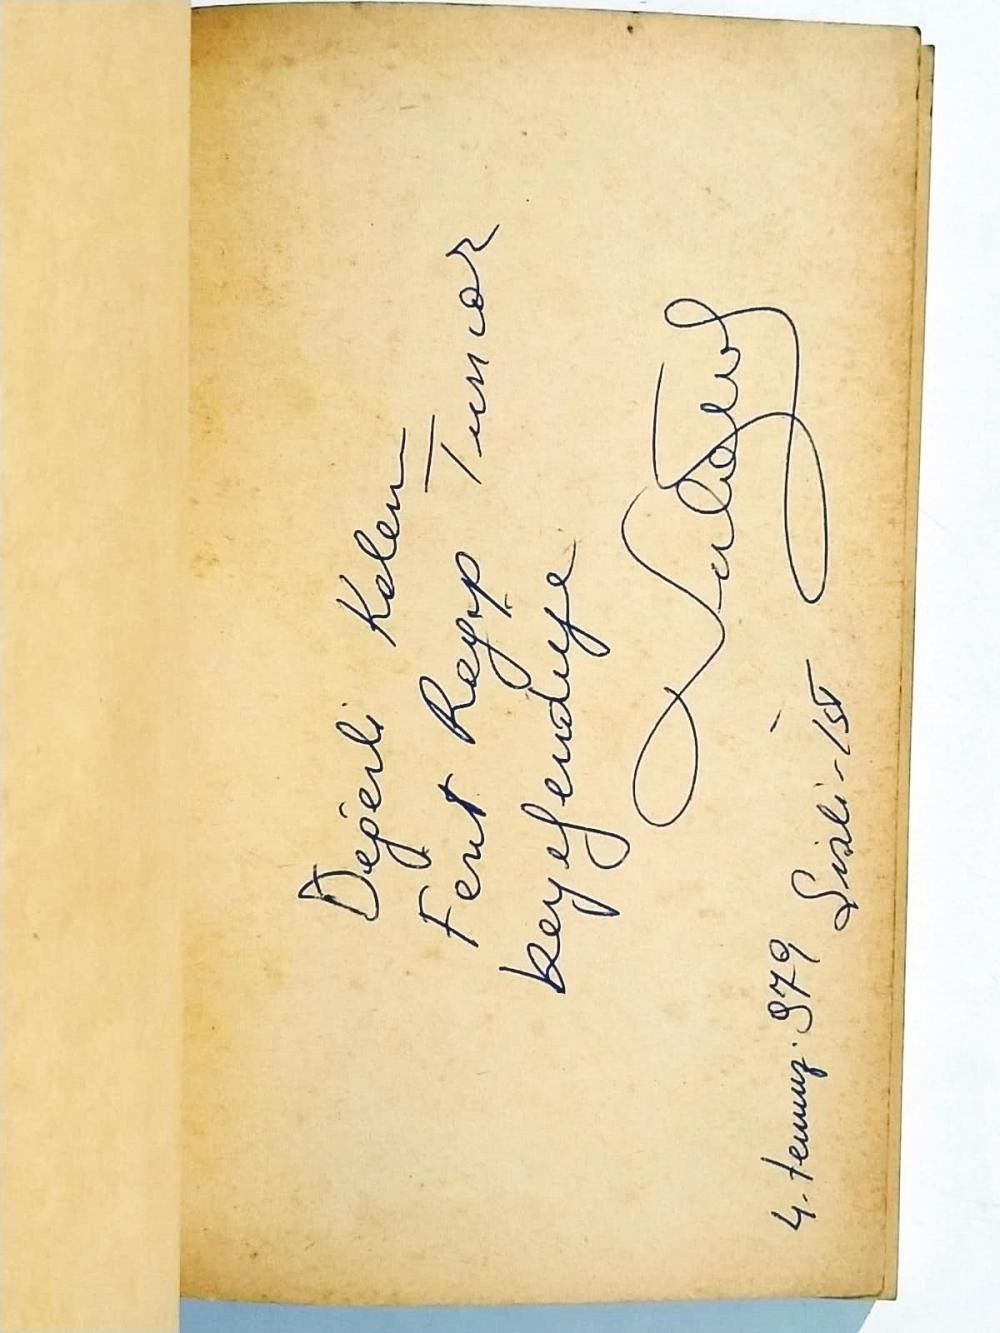 Değerli Kalem
Ferit Ragıp Tuncor
beyefendiye
4. temmuz. 979
Şişli-İST